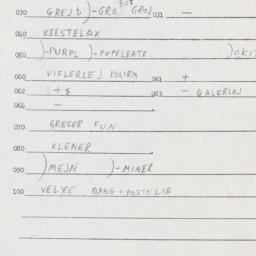 030 GREJB )-GRO GROJ 031 —
040 KBESTELAX
050 )-PURPL )-POPELBATE )OKI
060 VIFLERLEJ KOLIRN 061 +
062 + $ 063 - QALERLEJ
064 —
070 GRESER FUN
080 KLENER
090 )MEJN )-MINER
100 VELXE QANG + POSTELIB